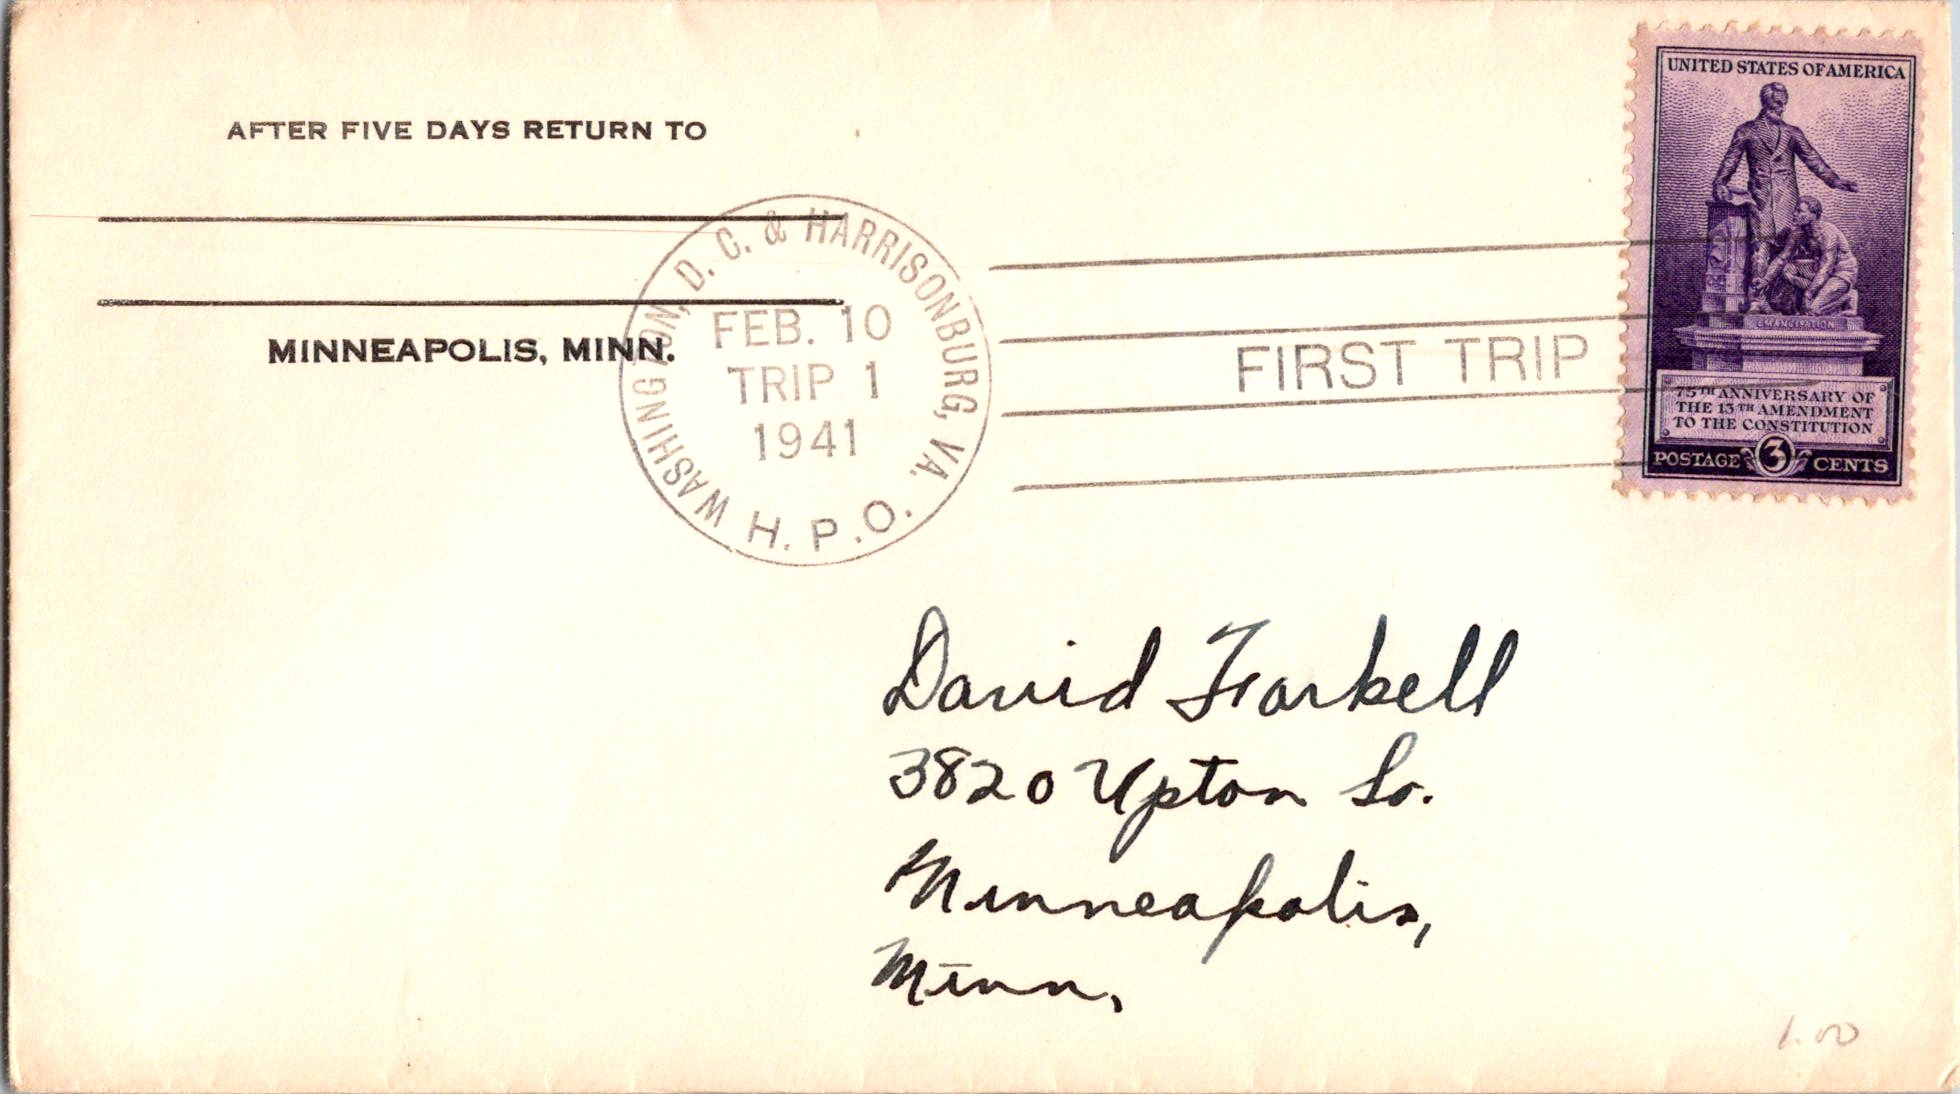 AFTER FIVE DAYS RETURN TO
MINNEAPOLIS, MINN.
WASHINGTON, D. C. & HARRISONBURG, VA.
FEB. 10
TRIP 1
1941
H. P. O.
FIRST TRIP
UNITED STATES OF AMERICA
EMANCIPATION
75TH ANNIVERSARY OF
THE 13TH AMENDMENT
TO THE CONSTITUTION
POSTAGE 3 CENTS
David Farkell
3820 Upton So.
Minneapolis,
Minn.
1.00